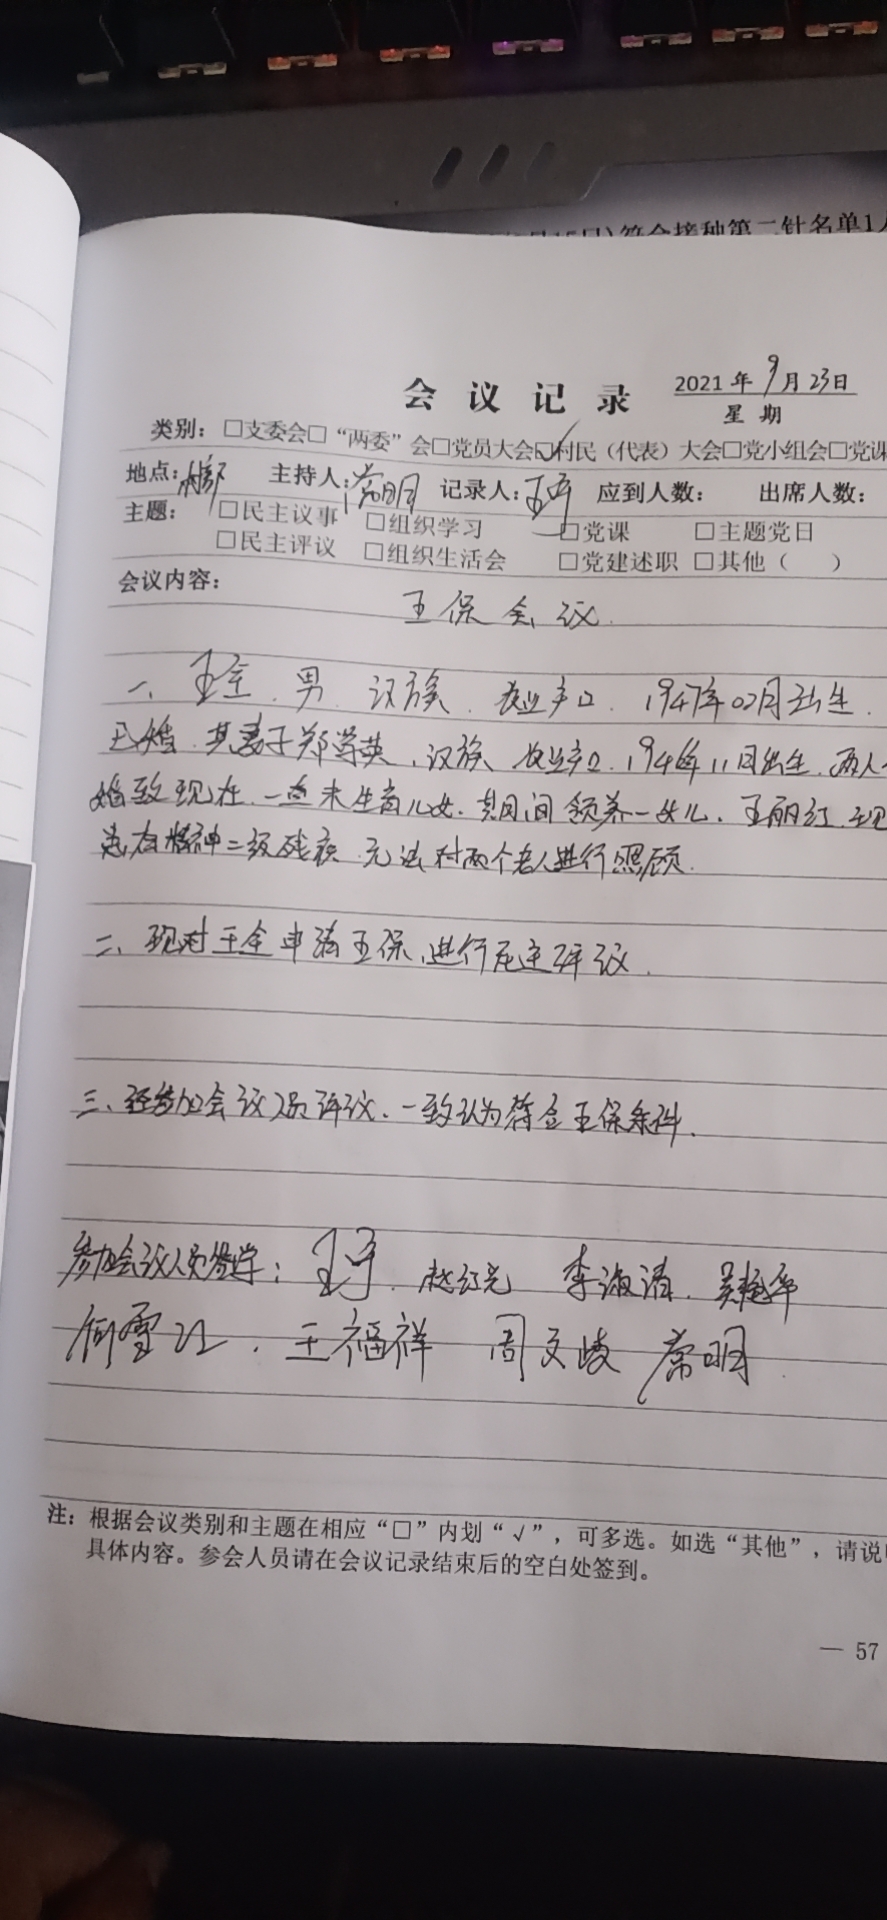 符合接种第二针名单1人
会议记录 2021年9月23日
星期
类别：□支委会□“两委”会□党员大会☑村民（代表）大会□党小组会□党课
地点：村部 主持人：常明 记录人：王宇 应到人数： 出席人数：
主题： □民主议事 □组织学习 □党课 □主题党日
□民主评议 □组织生活会 □党建述职 □其他（ ）
会议内容：
五保会议
一、王全．男．汉族．农业户口．1947年02月出生．
已婚．其妻子郑学英，汉族、农业户口．194 年11月出生．两人
婚致现在．一直未生育儿女．其间领养一女儿．王丽红．现
患有精神二级残疾．无法对两个老人进行照顾．
二、现对王全申请五保，进行民主评议．
三、经参加会议人员评议、一致认为符合五保条件．
参加会议人员签字：王宇．赵红光 李淑清．吴艳华
何雪江．王福祥 周文峻 常明．
注：根据会议类别和主题在相应“□”内划“√”，可多选。如选“其他”，请说明
具体内容。参会人员请在会议记录结束后的空白处签到。
— 57